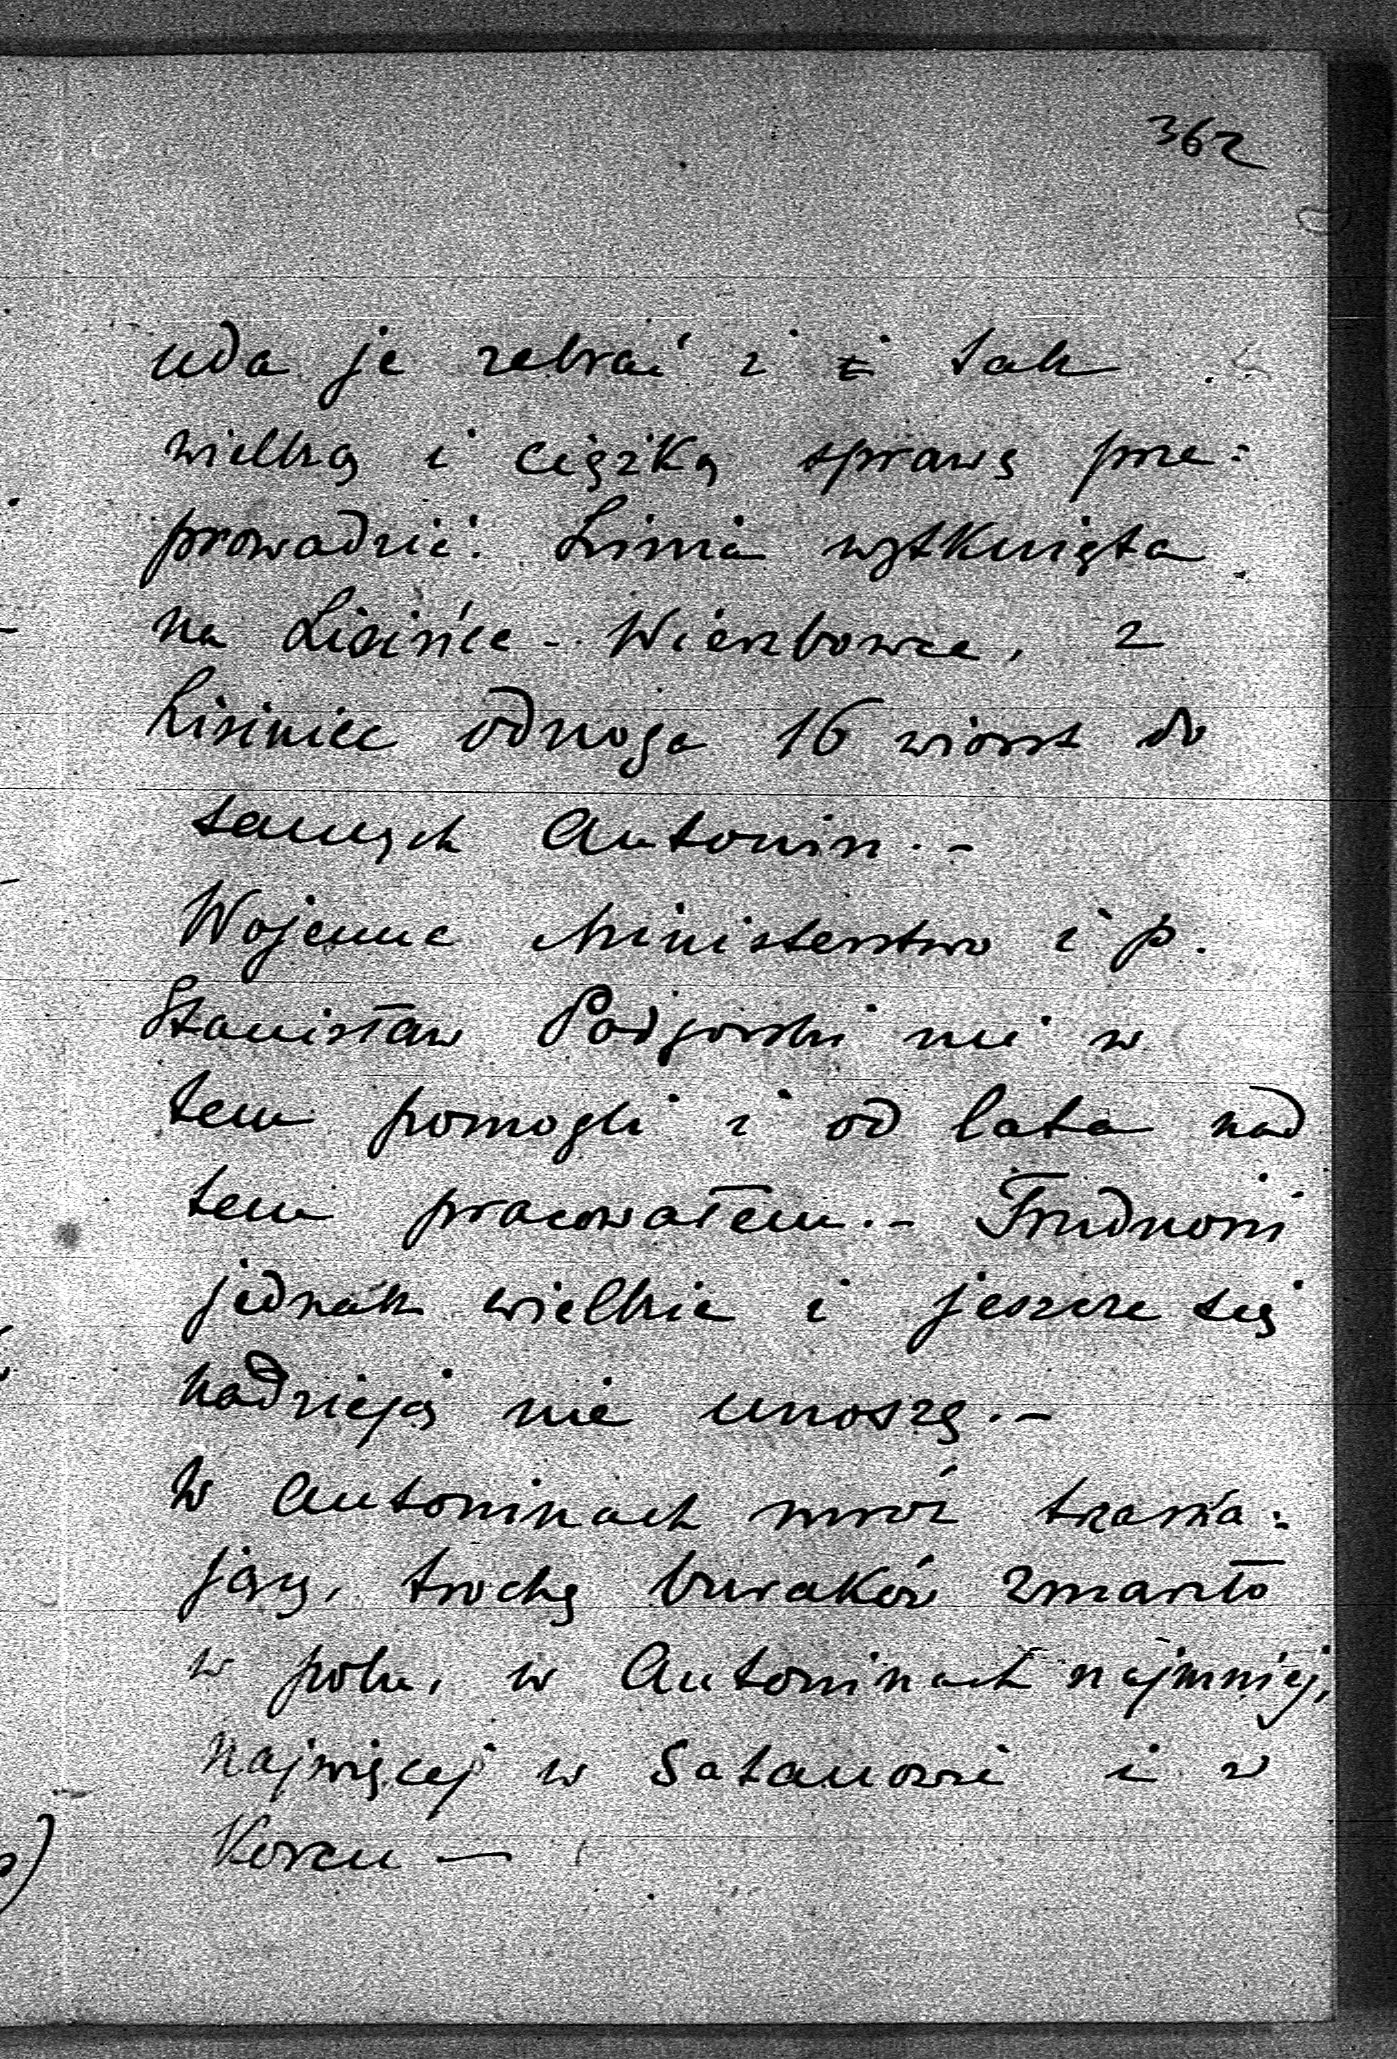 362
uda je zebrać i i tak
wielką i ciężką sprawę prze=
prowadzić. Linia wytknięta
na Lisińce - Wierzbowce, z
Lisiniec odnoga 16 wiorst do
samych Antonin. -
Wojenne Ministerstwo i p.
Stanisław Podgorski mi w
tem pomogli i od lata nad
tem pracowałem. - Trudności
jednak wielkie i jeszcze się
nadzieją nie unoszę. -
W Antoninach mróz trzaska=
jący, trochę buraków zmarzło
w polu, w Antoninach najmniej,
najwięcej w Satanowie i w
Korcu —